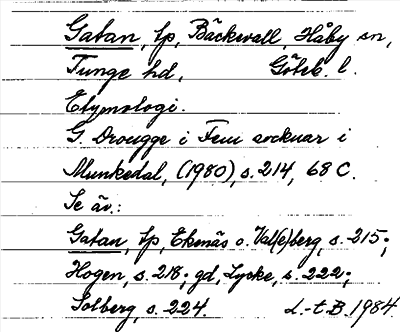 Gatan, lp, Bäckevall, Håby sn,
Tunge hd, Göteb. l.
Etymologi.
G. Drougge i Fem socknar i
Munkedal, (1980), s. 214, 68 C.
Se äv.:
Gatan, lp, Ekenäs o. Val(e)berg, s. 215;
Hogen, s. 218; gd, Lycke, s. 222;
Solberg, s. 224. L.-t.B. 1984